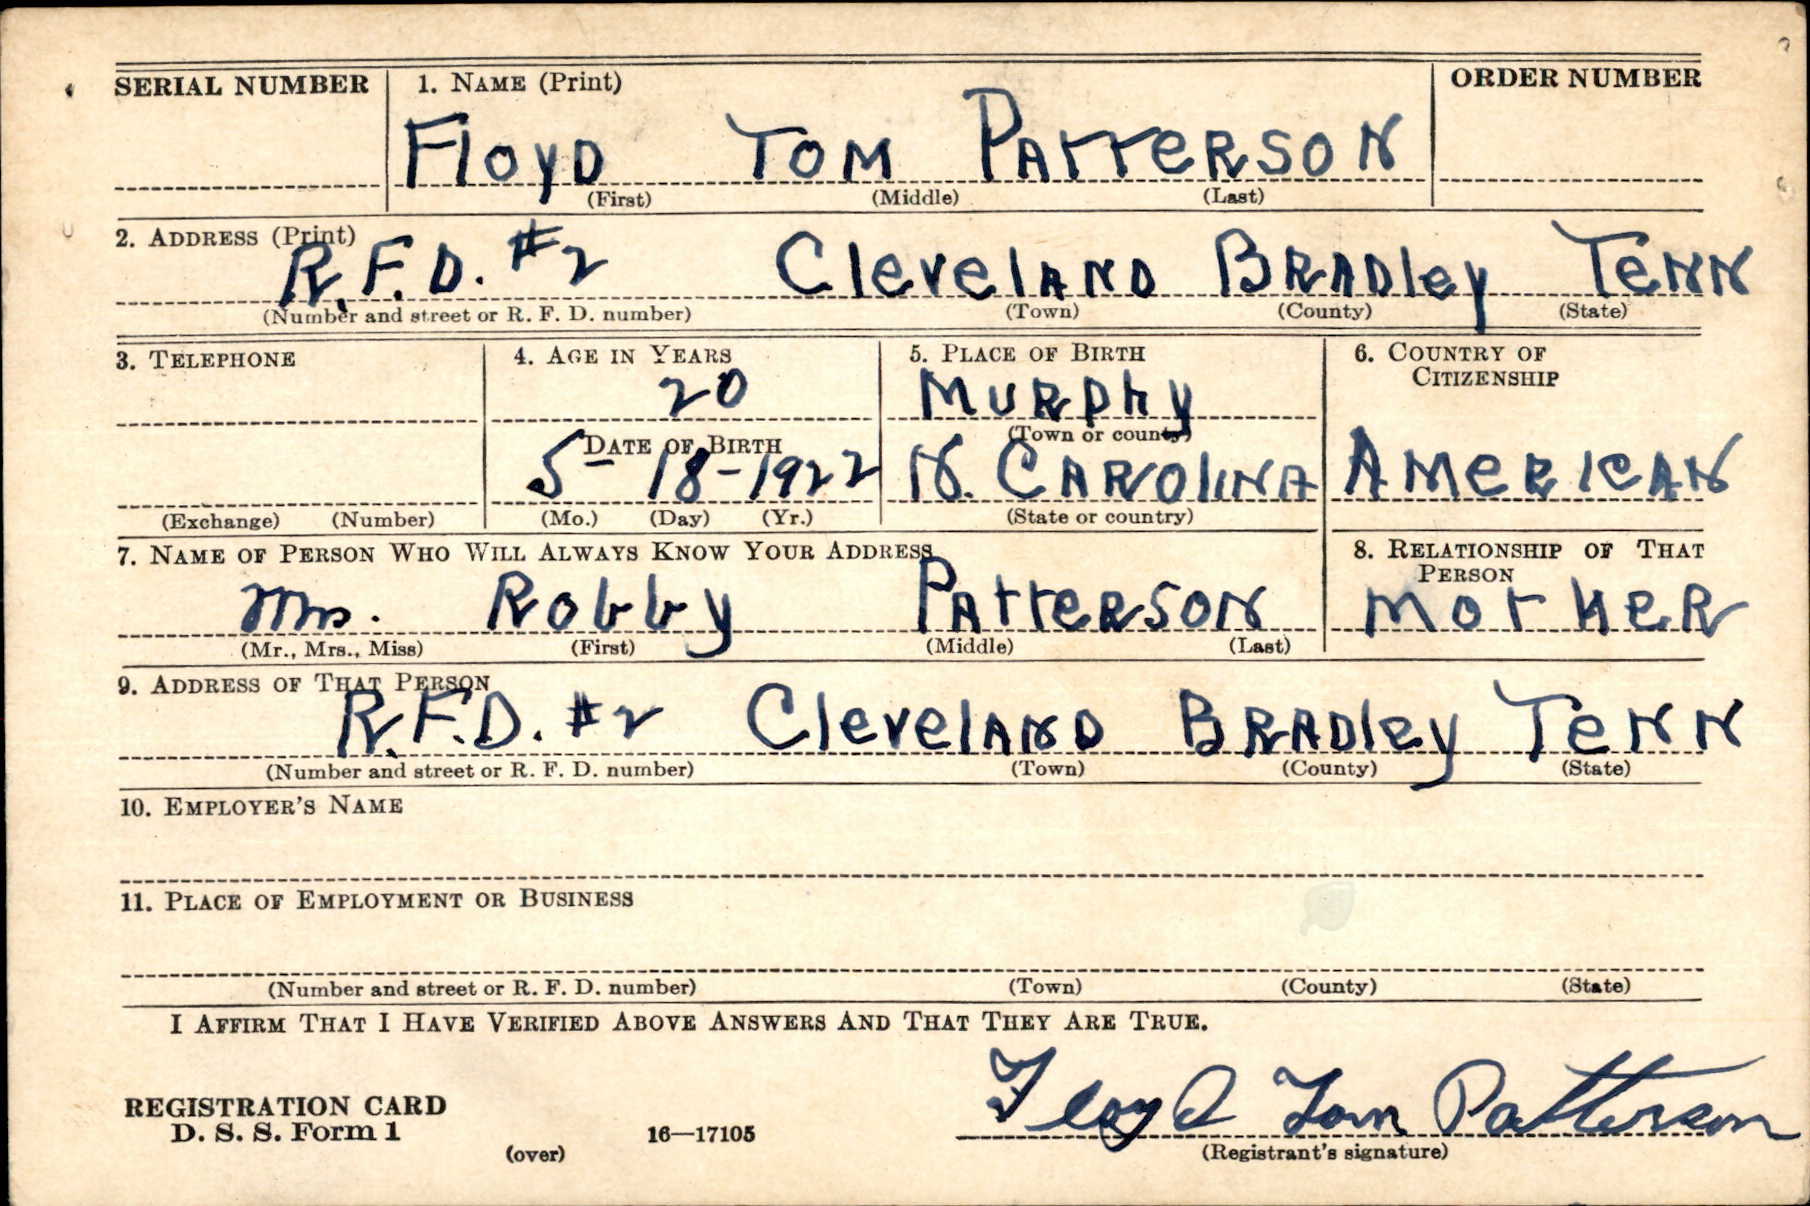 SERIAL NUMBER 1. NAME (Print) ORDER NUMBER
Floyd Tom Patterson
(First) (Middle) (Last)
2. ADDRESS (Print)
R.F.D. #2 Cleveland Bradley Tenn
(Number and street or R. F. D. number) (Town) (County) (State)
3. TELEPHONE 4. AGE IN YEARS 5. PLACE OF BIRTH 6. COUNTRY OF
CITIZENSHIP
20 Murphy
DATE OF BIRTH (Town or county)
5-18-1922 N. Carolina American
(Exchange) (Number) (Mo.) (Day) (Yr.) (State or country)
7. NAME OF PERSON WHO WILL ALWAYS KNOW YOUR ADDRESS 8. RELATIONSHIP OF THAT
PERSON
Mrs. Robby Patterson Mother
(Mr., Mrs., Miss) (First) (Middle) (Last)
9. ADDRESS OF THAT PERSON
R.F.D. #2 Cleveland Bradley Tenn
(Number and street or R. F. D. number) (Town) (County) (State)
10. EMPLOYER'S NAME
11. PLACE OF EMPLOYMENT OR BUSINESS
(Number and street or R. F. D. number) (Town) (County) (State)
I AFFIRM THAT I HAVE VERIFIED ABOVE ANSWERS AND THAT THEY ARE TRUE.
Floyd Tom Patterson
REGISTRATION CARD
D. S. S. Form 1 16—17105
(over) (Registrant's signature)